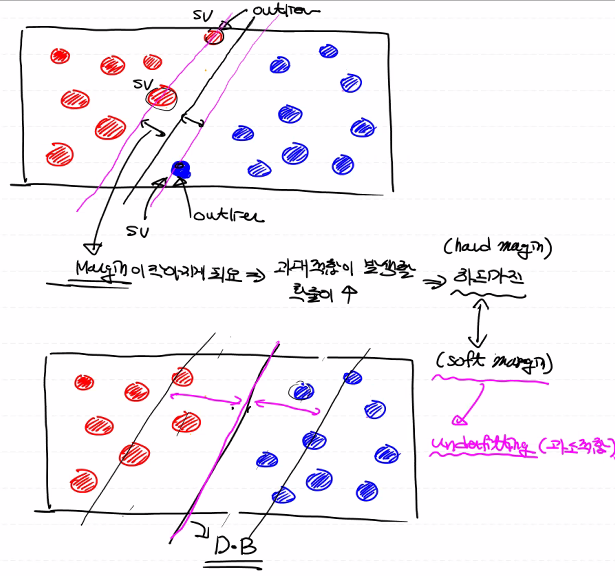 SV outlier
SV
SV outlier
Margin이 작아지게 되요 ⇒ 과대적합이 발생할 확률이 ↑ ⇒ 하드마진
(hard margin)
(soft margin)
underfitting (과소적합)
D·B